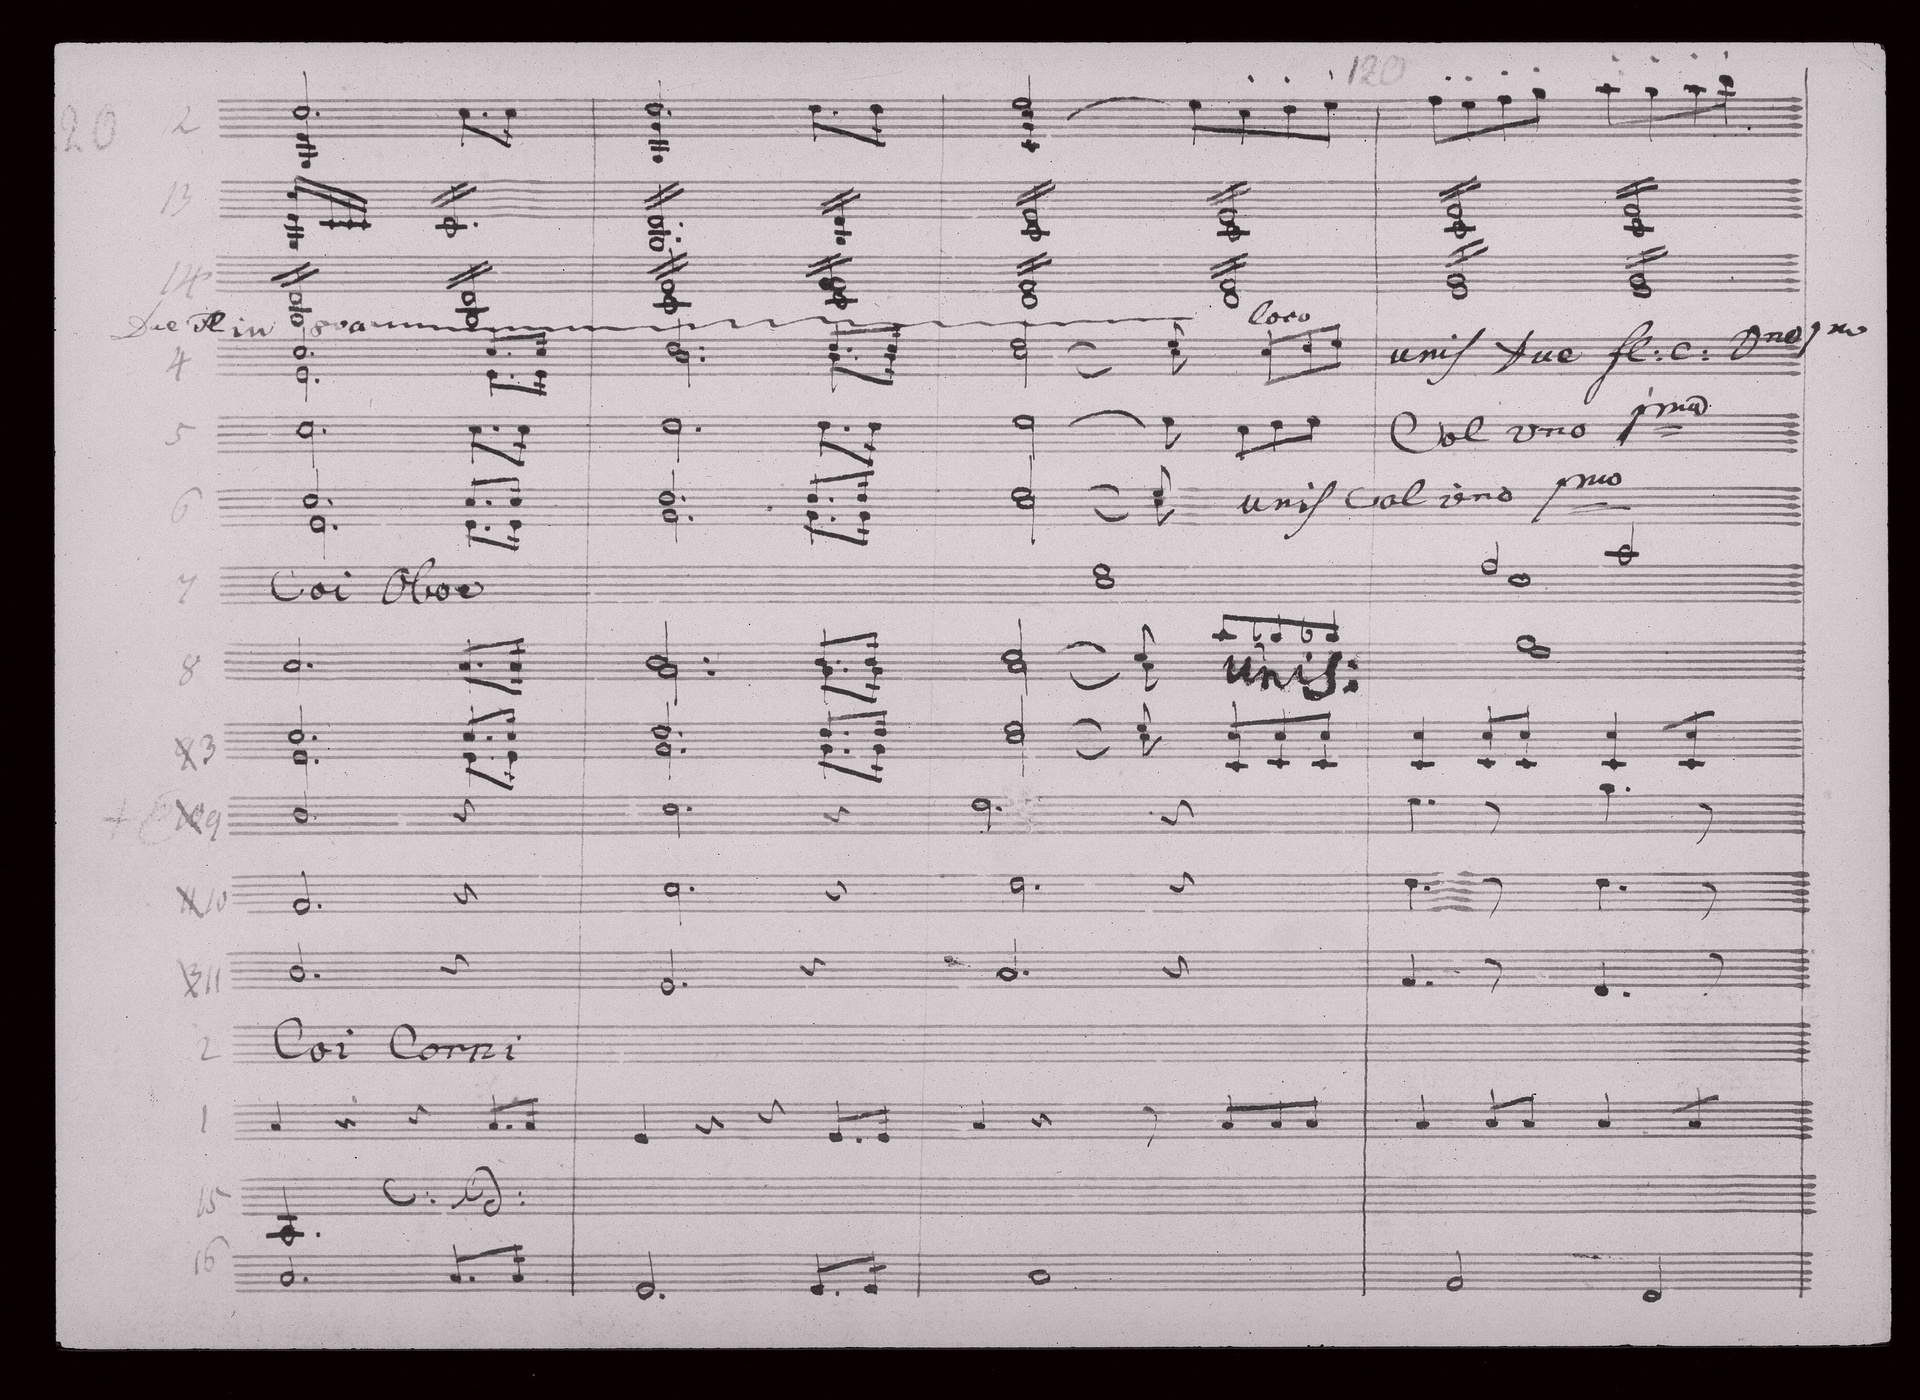 120
20 2
13
14
in 8va loco
4 unis Due fl: c:
5 Col vno pmo
6 unis Col vno pmo
7 Coi Oboe
8 unis:
3
9
10
11
2 Coi Corni
1
15 C: B:
16